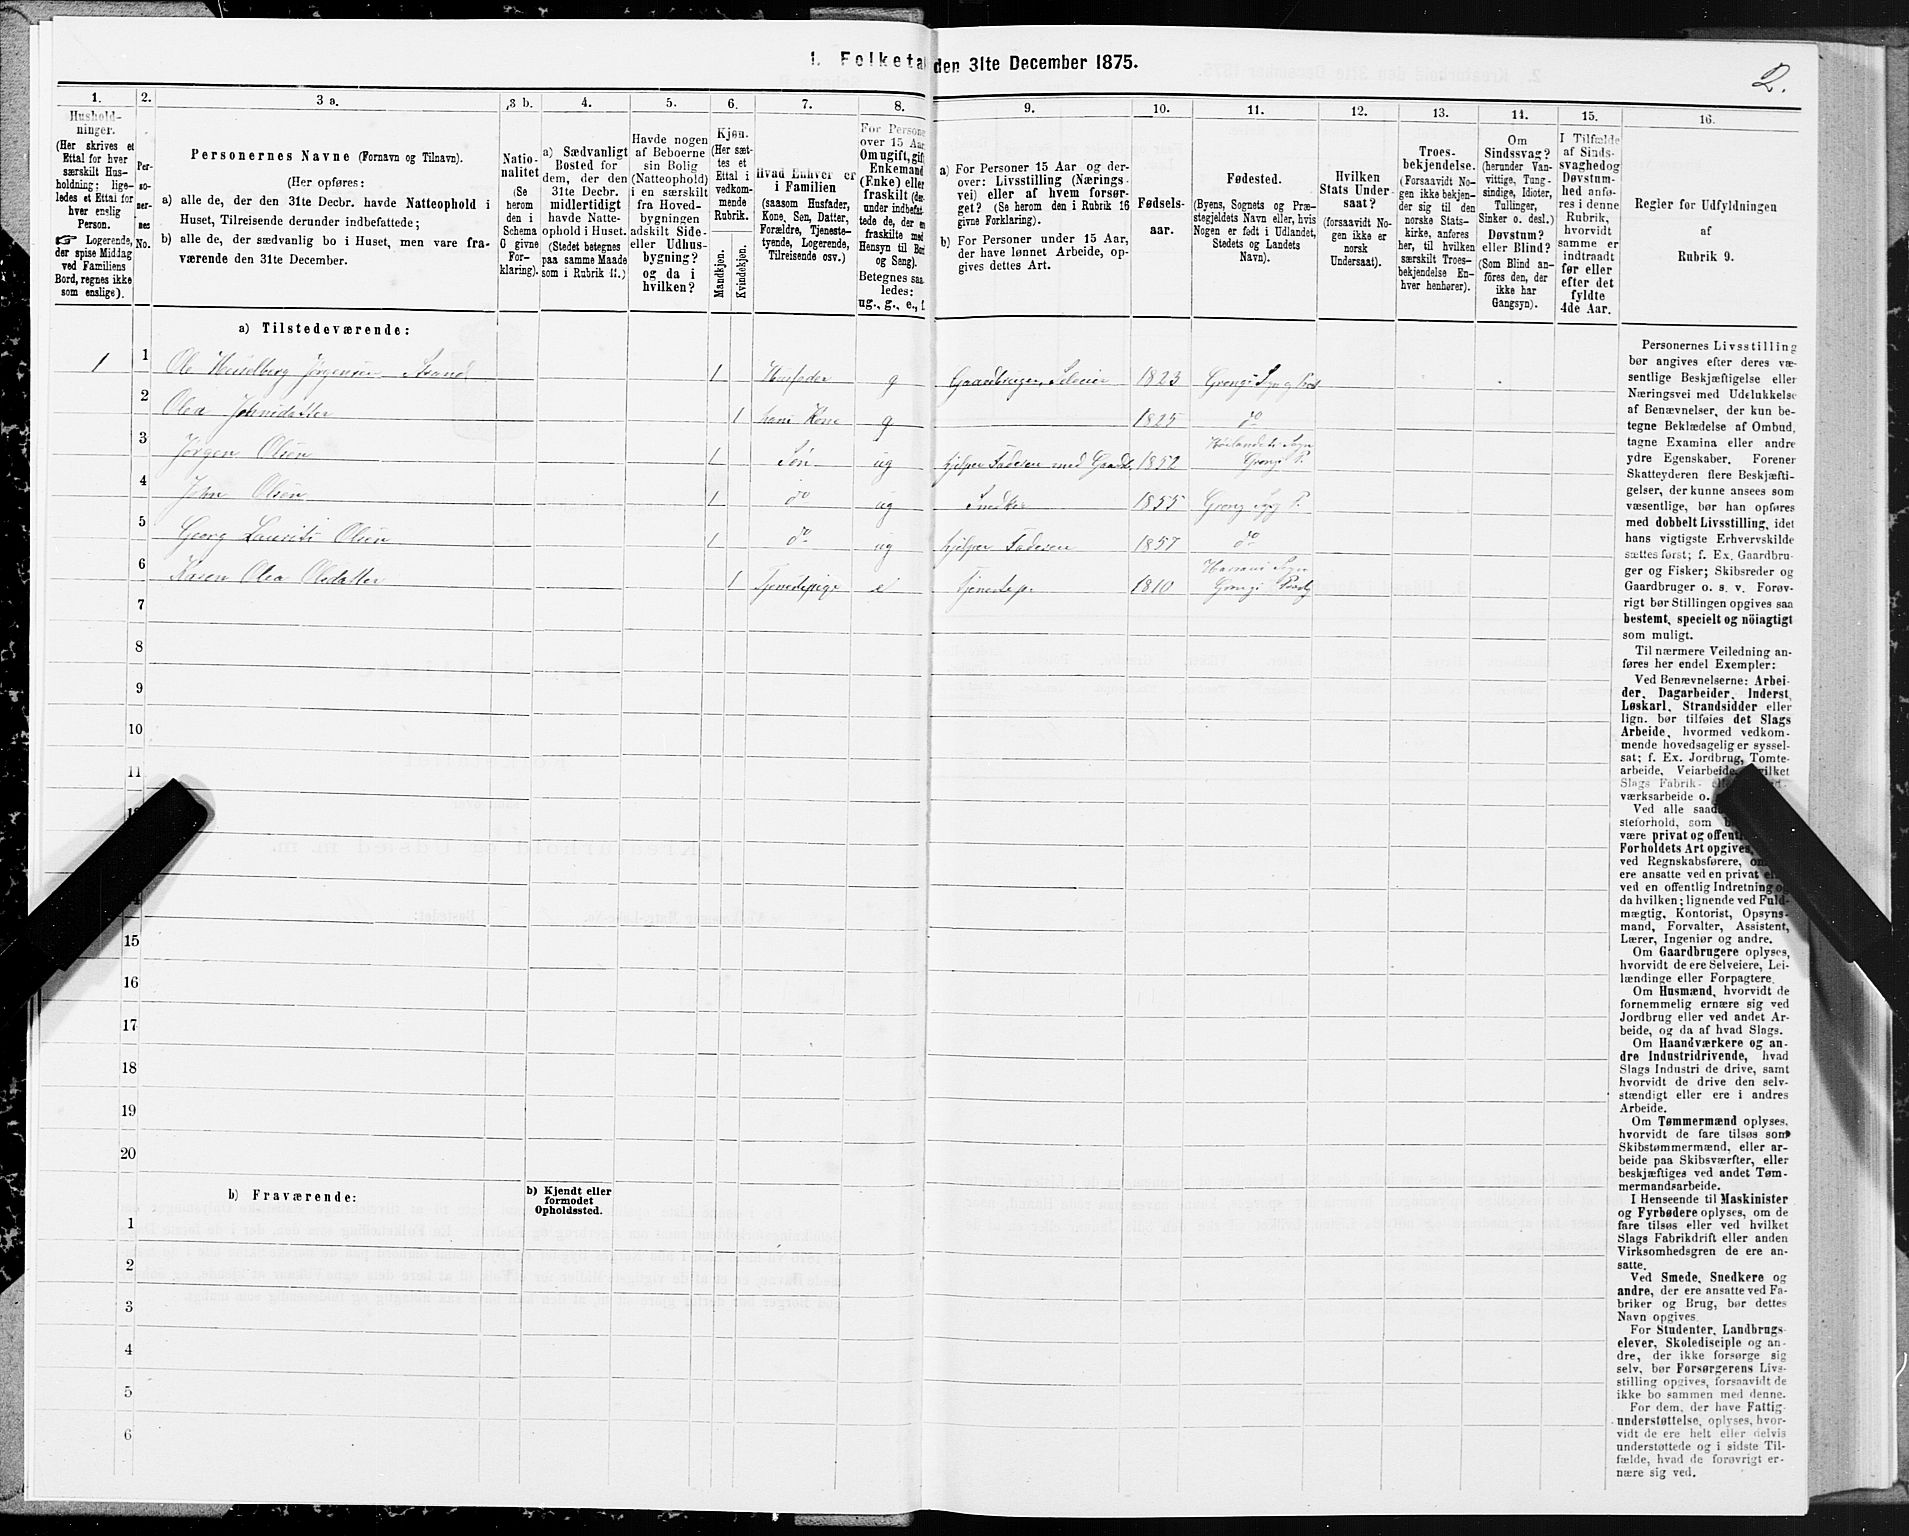 1. Folketal den 31te December 1875.
2.
1.
2.
3 a.
3 b.
4.
5.
6.
7.
8.
9.
10.
11.
12.
13.
14.
15.
16.
Hushold-
ninger.
(Her skrives et
Ettal for hver
særskilt Hus-
holdning; lige-
ledes et Ettal for
hver enslig
Person.
☞ Logerende,
der spise Middag
ved Familiens
Bord, regnes ikke
som enslige).
Per-
so-
ner-
nes
No.
Personernes Navne (Fornavn og Tilnavn).
(Her opføres:
a) alle de, der den 31te Decbr. havde Natteophold i
Huset, Tilreisende derunder indbefattede;
b) alle de, der sædvanlig bo i Huset, men vare fra-
værende den 31te December.
Natio-
nalitet
(Se
herom
den i
Schema
O givne
For-
klaring).
a) Sædvanligt
Bosted for
dem, der den
31te Decbr.
midlertidigt
havde Natte-
ophold i Huset.
(Stedet betegnes
paa samme Maade
som i Rubrik 11.)
Havde nogen
af Beboerne
sin Bolig
(Natteophold)
i en særskilt
fra Hoved-
bygningen
adskilt Side-
eller Udhus-
bygning?
og da i
hvilken?
Kjøn.
(Her sæt-
tes et
Ettal i
vedkom-
mende
Rubrik.
Mandkjøn.
Kvindekjøn.
Hvad Enhver er
i Familien
(saasom Husfader,
Kone, Søn, Datter,
Forældre, Tjeneste-
tyende, Logerende,
Tilreisende osv.)
For Persone
over 15 Aar
Om ugift, gift
Enkemand
(Enke) eller
fraskilt (der-
under indbefat-
tede de, der ere
fraskilte med
Hensyn til Bord
og Seng).
Betegnes saa-
ledes:
ug., g., e., f.
a) For Personer 15 Aar og der-
over: Livsstilling (Nærings-
vei) eller af hvem forsør-
get? (Se herom den i Rubrik 16
givne Forklaring).
b) For Personer under 15 Aar,
der have lønnet Arbeide, op-
gives dettes Art.
Fødsels-
aar.
Fødested.
(Byens, Sognets og Præ-
stegjeldets Navn eller, hvis
Nogen er født i Udlandet,
Stedets og Landets
Navn).
Hvilken
Stats Under-
saat?
(forsaavidt No-
gen ikke er
norsk
Undersaat).
Troes-
bekjendelse.
(Forsaavidt No-
gen ikke bekjen-
der sig til den
norske Stats-
kirke, anføres
her, til hvilken
særskilt Troes-
bekjendelse En-
hver henhører).
Om
Sindssvag?
(herunder Van-
vittige, Tung-
sindige, Idioter,
Tullinger,
Sinker o. desl.)
Døvstum?
eller Blind?
(Som Blind an-
føres den, der
ikke har
Gangsyn).
I Tilfælde
af Sinds-
svaghed og
Døvstum-
hed anfø-
res i denne
Rubrik,
hvorvidt
samme er
indtraadt
før eller
efter det
fyldte
4de Aar.
Regler for Udfyldningen
af
Rubrik 9.
a) Tilstedeværende:
1 1 Ole Heiselberg Jørgensen Strand 1 Husfader g Gaardbruger, Seleier 1823 Grongs Sogn og Præst
2 Olea Johnsdatter 1 hans Kone g 1825 do
3 Jørgen Olsen 1 Søn ug hjelper Faderen med Gaardb. 1852 Høilandets Sogn Grongs P.
4 John Olsen 1 do ug Snedker 1855 Grong S og P.
5 Georg Laurits Olsen 1 do ug hjelper Faderen 1857 do
6 Karen Olea Olsdatter 1 Tjenestepige e Tjenestep. 1810 Harrans Sogn Grongs Præstg
7
8
9
10
11
15
16
17
18
19
20
b) Fraværende:
b) Kjendt eller
formodet
Opholdssted.
1
2
3
4
5
6
Personernes Livsstilling
bør angives efter deres væ-
sentlige Beskjæftigelse eller
Næringsvei med Udelukkelse
af Benævnelser, der kun be-
tegne Beklædelse af Ombud,
tagne Examina eller andre
ydre Egenskaber. Forener
Skatteyderen flere Beskjæfti-
gelser, der kunne ansees som
væsentlige, bør han opføres
med dobbelt Livsstilling, idet
hans vigtigste Erhvervskilde
sættes først; f. Ex. Gaardbru-
ger og Fisker; Skibsreder og
Gaardbruger o. s. v. Forøv-
rigt bør Stillingen opgives saa
bestemt, specielt og nöiagtigt
som muligt.
Til nærmere Veiledning an-
føres her endel Exempler:
Ved Benævnelserne: Arbei-
der, Dagarbeider, Inderst,
Løskarl, Strandsidder eller
lign. bør tilføies det Slags
Arbeide, hvormed vedkom-
mende hovedsagelig er syssel-
sat; f. Ex. Jordbrug, Tomte-
arbeide, Veiarbeide, hvilket
Slags Fabrik- eller
værksarbeide o.
Ved alle saad
steforhold, som
være privat og offent
Forholdets Art opgives,
ved Regnskabsførere, om
ere ansatte ved en privat el
ved en offentlig Indretning og
da hvilken; lignende ved Fuld-
mægtig, Kontorist, Opsyns-
mand, Forvalter, Assistent,
Lærer, Ingeniør og andre.
Om Gaardbrugere oplyses,
hvorvidt de ere Selveiere, Lei-
lændinge eller Forpagtere.
Om Husmænd, hvorvidt de
fornemmelig ernære sig ved
Jordbrug eller ved andet Ar-
beide, og da af hvad Slags.
Om Haandværkere og an-
dre Industridrivende, hvad
Slags Industri de drive, samt
hvorvidt de drive den selv-
stændigt eller ere i andres
Arbeide.
Om Tømmermænd oplyses,
hvorvidt de fare tilsøs som
Skibstømmermænd, eller ar-
beide paa Skibsværfter, eller
beskjæftiges ved andet Tøm-
mermandsarbeide.
I Henseende til Maskinister
og Fyrbødere oplyses, om de
fare tilsøs eller ved hvilket
Slags Fabrikdrift eller anden
Virksomhedsgren de ere an-
satte.
Ved Smede, Snedkere og
andre, der ere ansatte ved Fa-
briker og Brug, bør dettes
Navn opgives.
For Studenter, Landbrugs-
elever, Skoledisciple og an-
dre, der ikke forsørge sig
selv, bør Forsørgerens Livs-
stilling opgives, forsaavidt de
ikke bo sammen med denne.
For dem, der have Fattig-
understøttelse, oplyses, hvor-
vidt de ere helt eller delvis
understøttede og i sidste Til-
fælde, hvad de forøvrigt er-
nære sig ved.